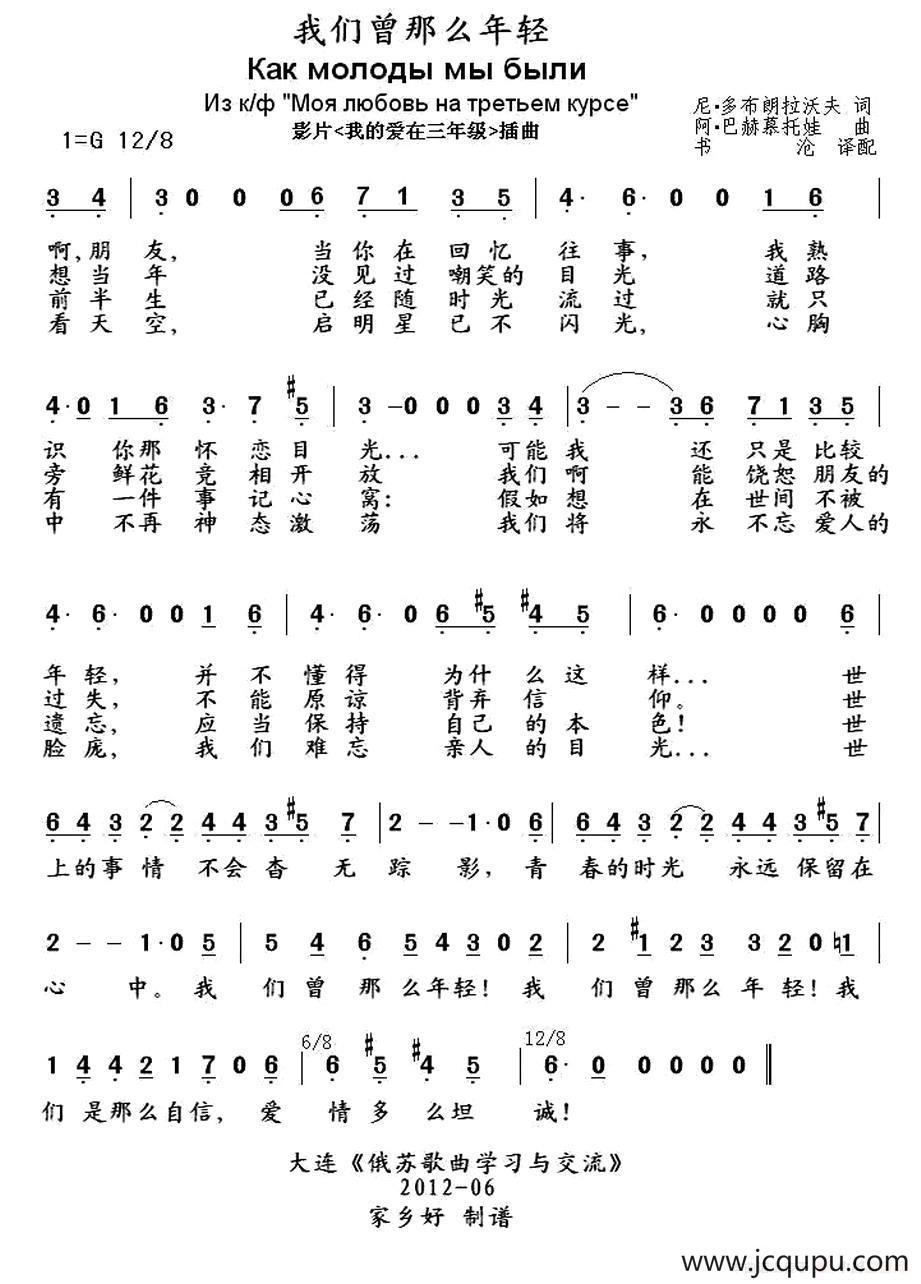 我们曾那么年轻
Как молоды мы были
Из к/ф "Моя любовь на третьем курсе"
影片<我的爱在三年级>插曲
1=G 12/8
尼·多布朗拉沃夫 词
阿·巴赫慕托娃 曲
书 沧 译配
3 4 | 3 0 0 0 6 7 1 3 5 | 4· 6· 0 0 1 6 |
啊,朋友, 当你在 回忆 往事, 我熟
想当年 没见过 嘲笑的 目光 道路
前半生 已经随 时光 流过 就只
看天空, 启明星 已不 闪光, 心胸
4·0 1 6 3· 7 #5 | 3 -0 0 0 3 4 | 3 - - 3 6 7 1 3 5 |
识 你那 怀 恋 目 光... 可能我 还 只是 比较
旁 鲜花 竞 相 开 放 我们啊 能 饶恕 朋友的
有 一件 事 记 心 窝: 假如想 在 世间 不被
中 不再 神 态 激 荡 我们将 永 不忘 爱人的
4· 6· 0 0 1 6 | 4· 6· 0 6 #5 #4 5 | 6· 0 0 0 0 6 |
年 轻, 并 不 懂 得 为什 么 这 样... 世
过 失, 不 能 原 谅 背弃 信 仰。 世
遗 忘, 应 当 保 持 自己 的 本 色! 世
脸 庞, 我 们 难 忘 亲人 的 目 光... 世
6 4 3 2 2 4 4 3 #5 7 | 2 - -1·0 6 | 6 4 3 2 2 4 4 3 #5 7 |
上的事 情 不会 杳 无 踪 影, 青 春的时光 永远 保留在
2 - - 1·0 5 | 5 4 6 5 4 3 0 2 | 2 #1 2 3 3 2 0 ♮1 |
心 中。 我 们 曾 那 么年轻! 我 们 曾 那么 年 轻! 我
1 4 4 2 1 7 0 6 | 6/8 6 #5 #4 5 | 12/8 6· 0 0 0 0 0 ‖
们 是那么自信, 爱 情 多 么坦 诚!
大连《俄苏歌曲学习与交流》
2012-06
家乡好 制谱
www.jcqupu.com